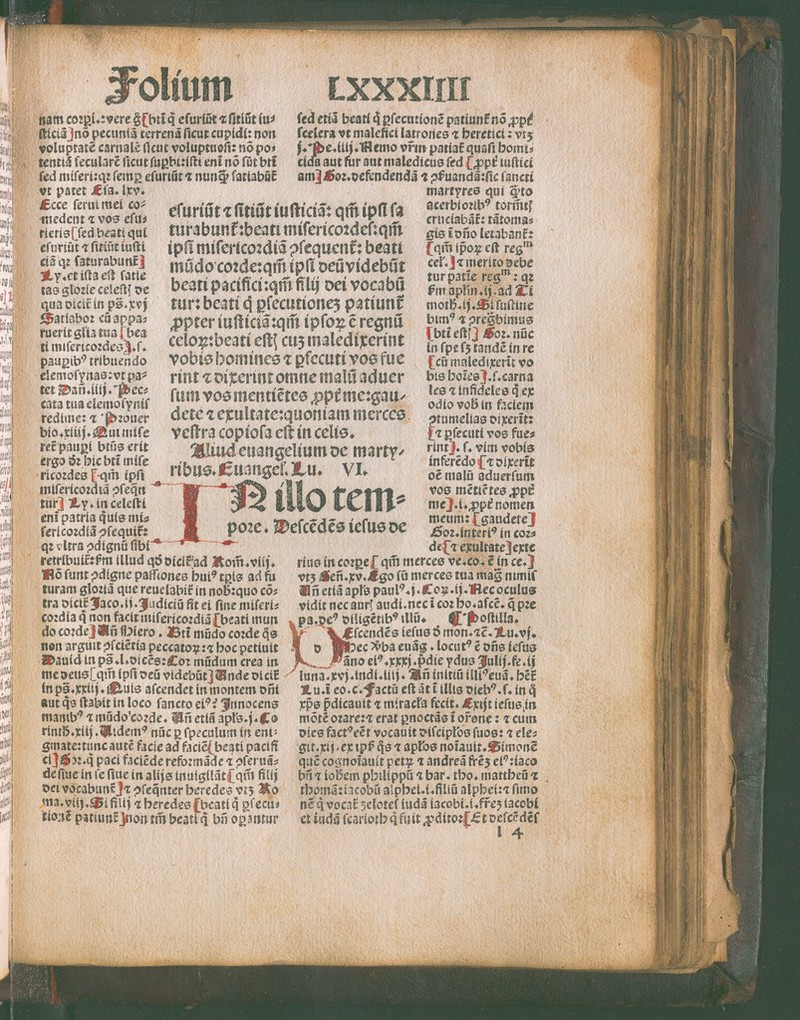 Folium LXXXIIII
nam corpꝭ.:vere ꝙ̃[btĩ q̃ esuriũt ⁊ sitiũt iu⸗
sticiã]nõ pecuniã terrenã sicut cupidi: non
voluptatẽ carnalẽ sicut voluptuosi: nõ po⸗
tentiã secularẽ sicut supbi:isti eni nõ sũt btĩ
sed miseri:qꝛ semp esuriũt ⁊ nunq̃ꝫ satiabũt̃
vt patet Esa. lxv.
Ecce serui mei co⸗
medent ⁊ vos esu⸗
rietis[sed beati qui
esuriũt ⁊ sitiũt iusti
ciã qꝛ saturabunt̃]
Ly.et ista est satie
tas glorie celestꝭ de
qua dicit̃ in ps̃.xvj
Satiabor cũ appa⸗
ruerit glĩa tua[bea
ti misericordes].s.
paupibꝰ tribuendo
elemosynas:vt pa⸗
tet Dañ.iiij. Pec⸗
cata tua elemosynis
redime: ⁊ Prouer
bio.xiiij. Qui mise
ret̃ paupi btũs erit
ergo dꝛ hic btĩ mise
ricordes[qm̃ ipsi
misericordiã ↄseq̃n
tur] Ly. in celesti
eni patria q̃uis mi⸗
sericordiã ↄsequit̃:
qꝛ vltra ↄdignũ sibi
retribuit̃:ẜm illud qd̃ dicit̃ ad Rom̃.viij.
Nõ sunt ↄdigne passiones huiꝰ tp̃is ad fu
turam gloriã que reuelabit̃ in nob̃:quo cõ⸗
tra dicit̃ Jaco.ij. Judiciũ fit ei sine miseri⸗
cordia q̃ non facit misericordiã[beati mun
do corde]Uñ Hiero. Btĩ mũdo corde q̃s
non arguit ↄsciẽtia peccatoꝝ:⁊ hoc petiuit
Dauid in ps̃.l.dicẽs:Cor mũdum crea in
me deus[qm̃ ipsi deũ videbũt]Unde dicit̃
in ps̃.xxiij. Quis ascendet in montem dñi
aut q̃s stabit in loco sancto eiꝰ? Innocens
manibꝰ ⁊ mũdo corde. Uñ etiã apl̃s.j. Co
rinth.xiij. Uidemꝰ nũc p speculum in eni⸗
gmate:tunc autẽ facie ad faciẽ[beati pacifi
ci]Gor.q̃ paci faciẽde reformãde ⁊ ↄseruã⸗
de siue in se siue in alijs inuigilãt[qm̃ filij
dei vocabunt̃]⁊ ↄseq̃nter heredes vtꝫ Ro
ma.viij. Si filij ⁊ heredes[beati q̃ psecu⸗
tionẽ patiunt̃]non tm̃ beati q̃ bñ opantur
esuriũt ⁊ sitiũt iusticiã: qm̃ ipsi sa
turabunt̃:beati misericordes:qm̃
ipsi misericordiã ↄsequent̃: beati
mũdo corde:qm̃ ipsi deũ videbũt
beati pacifici:qm̃ filij dei vocabũ
tur: beati q̃ psecutionez patiunt̃
ꝓpter iusticiã:qm̃ ipsoꝝ ẽ regnũ
celoꝝ:beati estꝭ cuz maledixerint
vobis homines ⁊ psecuti vos fue
rint ⁊ dixerint omne malũ aduer
sum vos mentiẽtes ꝓpt̃ me:gau⸗
dete ⁊ exultate:quoniam merces
vestra copiosa est in celis.
Aliud euangelium de marty⸗
ribus. Euangel̃. Lu. VI.
IN illo tem⸗
pore. Descẽdẽs iesus de
sed etiã beati q̃ psecutionẽ patiunt̃ nõ ꝓpt̃
scelera vt malefici latrones ⁊ heretici: vtꝫ
j. Pe.iiij. Nemo vr̃m patiat̃ quasi homi⸗
cida aut fur aut maledicus sed[ꝓpt̃ iustici
am]Gor.defendendã ⁊ ↄẜuandã:sic sancti
martyres qui q̃to
acerbioribꝰ tormt̃ꝭ
cruciabãt̃: tãtoma⸗
gis ĩ dño letabant̃:
[qm̃ ip̃oꝝ est regᵐ
cel̃.]⁊ merito debe
tur patĩe regᵐ: qꝛ
ẜm apl̃m.ij.ad Ti
moth.ij. Si sustine
bimꝰ ⁊ ↄregbimus
[btĩ estꝭ] Gor. nũc
in spe sꝫ tandẽ in re
[cũ maledixerĩt vo
bis hoĩes].s.carna
les ⁊ infideles q̃ ex
odio vob̃ in faciem
ↄtumelias dixerĩt:
[⁊ psecuti vos fue⸗
rint]. s. vim vobis
inferẽdo[⁊ dixerĩt
oẽ malũ aduersum
vos mẽtiẽtes ꝓpt̃
me].i.ꝓpt̃ nomen
meum: [gaudete]
Gor.interiꝰ in cor⸗
de[⁊ exultate]exte
rius in corpe[qm̃ merces ve.co.ẽ in ce.]
vtꝫ Geñ.xv. Ego sũ merces tua mag̃ nimis
Uñ etiã apl̃s paulꝰ.j. Coꝝ.ij. Nec oculus
vidit nec aurꝭ audi.nec ĩ cor ho.ascẽ. q̃ pꝛe
pa.deꝰ diligẽtibꝰ illũ. ¶ Postilla.
DEscendẽs iesus d̃ mon.⁊c̃. Lu.vj.
Hec v̾ba euãg. locutꝰ ẽ dñs iesus
ãno eiꝰ.xxxj.pdie ydus Julij.fe.ij
luna.xvj.indi.iiij. Uñ initiũ illiꝰ euã. hẽt̃
Lu.ĩ eo.c. Factũ est ãt ĩ illis diebꝰ.s. in q̃
xp̃s p̃dicauit ⁊ miracl̃a fecit. Exijt iesus in
mõtẽ orare:⁊ erat pnoctãs ĩ or̃one : ⁊ cum
dies factꝰ eẽt vocauit discipl̃os suos: ⁊ ele⸗
git.xij.ex ip̃ꝭ q̃s ⁊ apl̃os noĩauit. Simonẽ
quẽ cognoĩauit petꝝ ⁊ andreã fr̃eꝫ eiꝰ:iaco
bũ ⁊ ioh̃em philippũ ⁊ bar. tho. mattheũ ⁊
thomã:iacobũ alphei.i.filiũ alphei:⁊ simo
nẽ q̃ vocat̃ zelotes iudã iacobi.i.fr̃eꝫ iacobi
et iudã scarioth q̃ fuit ꝓditor[Et descẽdẽs
l 4